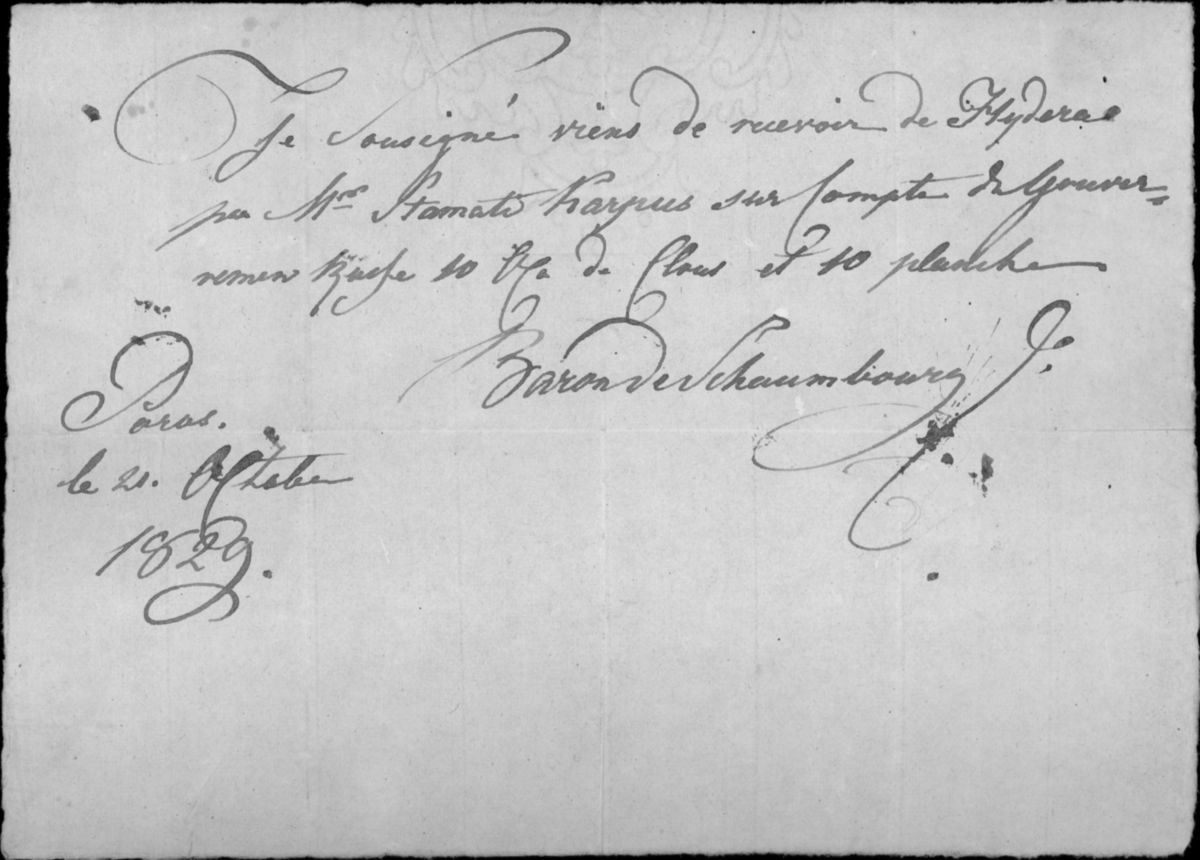 Je Sousigné viens de recevoir de Hydera
par Mr Stamati Karpus sur Compte de Gouver=
nemen Russe 10 Oka de Clous et 10 planche
Baron de Schaumbourg
Poros.
le 21. Octobre
1829.